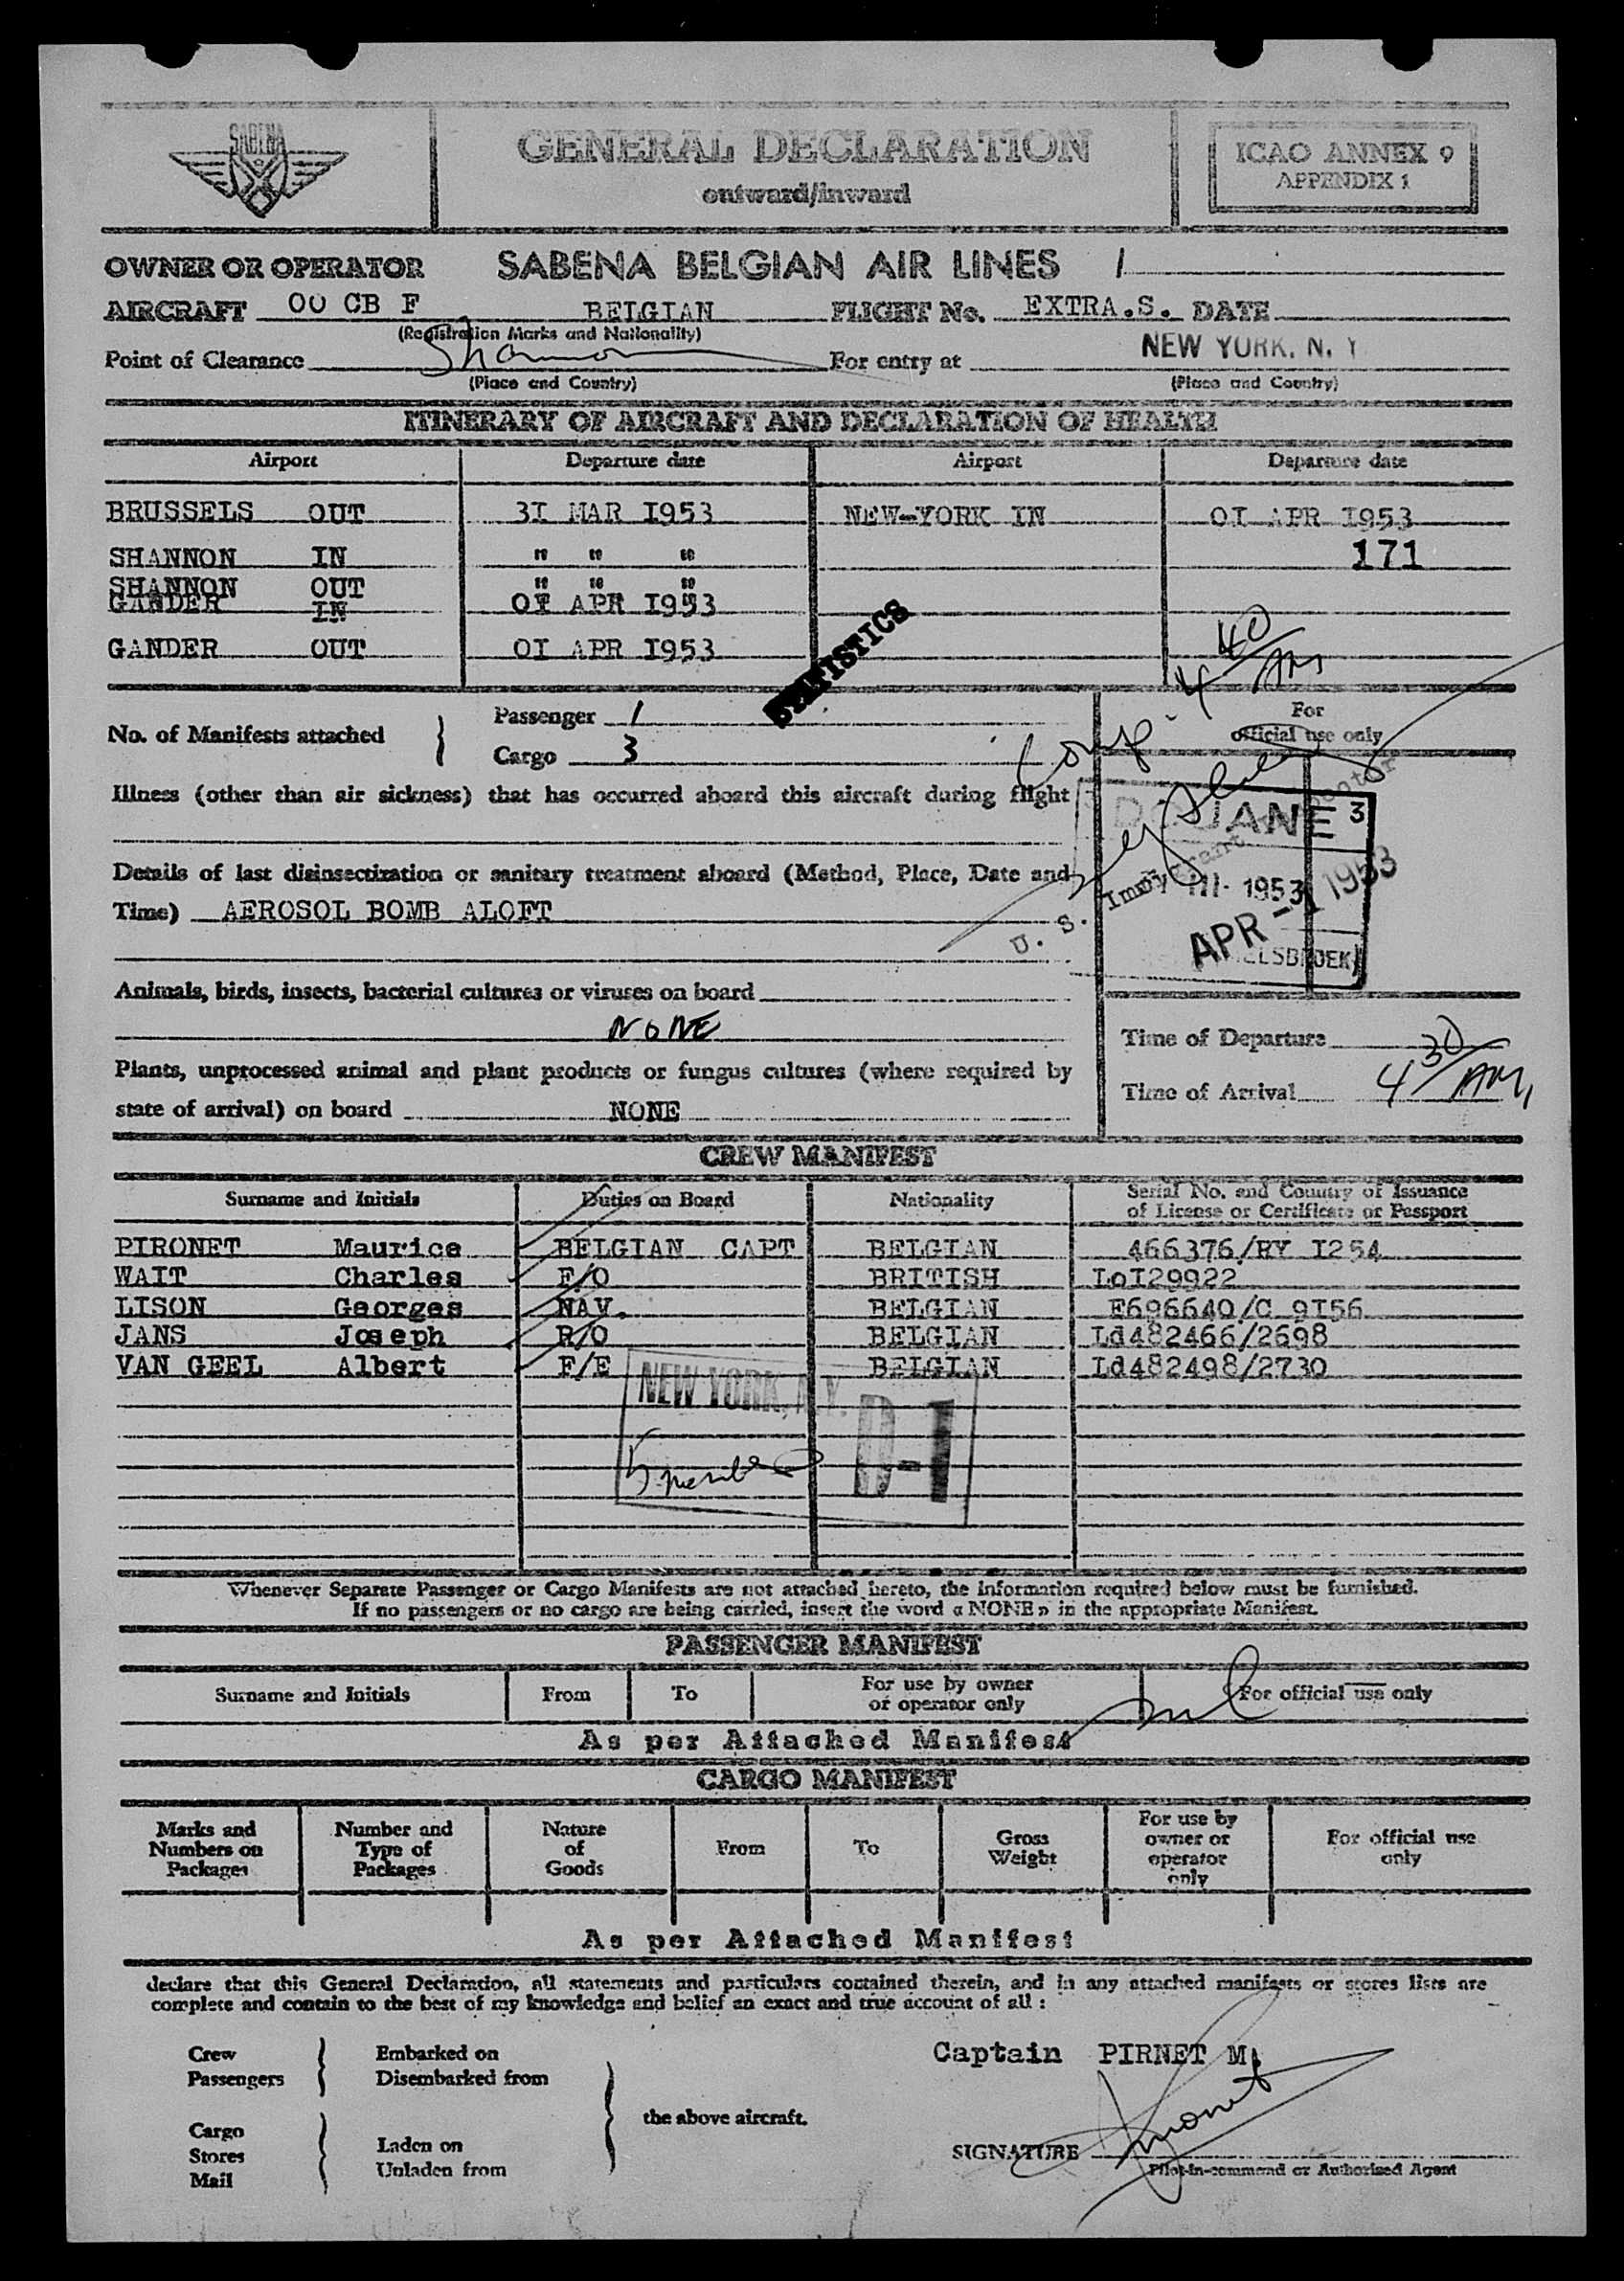 SABENA
GENERAL DECLARATION
outward/inward
ICAO ANNEX 9
APPENDIX 1
OWNER OR OPERATOR SABENA BELGIAN AIR LINES /
AIRCRAFT OO CB F BELGIAN FLIGHT No. EXTRA.S. DATE
(Registration Marks and Nationality)
Point of Clearance Shannon For entry at NEW YORK, N. Y
(Place and Country) (Place and Country)
ITINERARY OF AIRCRAFT AND DECLARATION OF HEALTH
Airport Departure date Airport Departure date
BRUSSELS OUT 3I MAR I953 NEW-YORK IN OI APR I953
SHANNON IN " " " 171
SHANNON OUT " " "
GANDER IN OI APR I953
GANDER OUT OI APR I953
STATISTICS
4 40 AM
No. of Manifests attached } Passenger 1
Cargo 3
For
official use only
Illness (other than air sickness) that has occurred aboard this aircraft during flight
DOUANE 3
Details of last disinsectization or sanitary treatment aboard (Method, Place, Date and
Time) AEROSOL BOMB ALOFT
U. S. Immigrant Inspector
III. 1953
APR - 1 1953
Animals, birds, insects, bacterial cultures or viruses on board
NONE
Time of Departure
Plants, unprocessed animal and plant products or fungus cultures (where required by
state of arrival) on board NONE
Time of Arrival 4 30 AM
CREW MANIFEST
Surname and Initials Duties on Board Nationality Serial No. and Country of Issuance
of License or Certificate or Passport
PIRONET Maurice BELGIAN CAPT BELGIAN 466376/RY I254
WAIT Charles F/O BRITISH LoI29922
LISON Georges NAV. BELGIAN E696640/C 9I56
JANS Joseph R/O BELGIAN Ld482466/2698
VAN GEEL Albert F/E BELGIAN Ld482498/2730
NEW YORK, N.Y.
D-1
Whenever Separate Passenger or Cargo Manifests are not attached hereto, the information required below must be furnished.
If no passengers or no cargo are being carried, insert the word « NONE » in the appropriate Manifest.
PASSENGER MANIFEST
Surname and Initials From To For use by owner
or operator only For official use only
As per Attached Manifest
CARGO MANIFEST
Marks and
Numbers on
Packages
Number and
Type of
Packages
Nature
of
Goods
From
To
Gross
Weight
For use by
owner or
operator
only
For official use
only
As per Attached Manifest
declare that this General Declaration, all statements and particulars contained therein, and in any attached manifests or stores lists are
complete and contain to the best of my knowledge and belief an exact and true account of all :
Crew
Passengers
Embarked on
Disembarked from
Cargo
Stores
Mail
Laden on
Unladen from
the above aircraft.
Captain PIRNET M.
SIGNATURE Pironet
Pilot-in-command or Authorised Agent